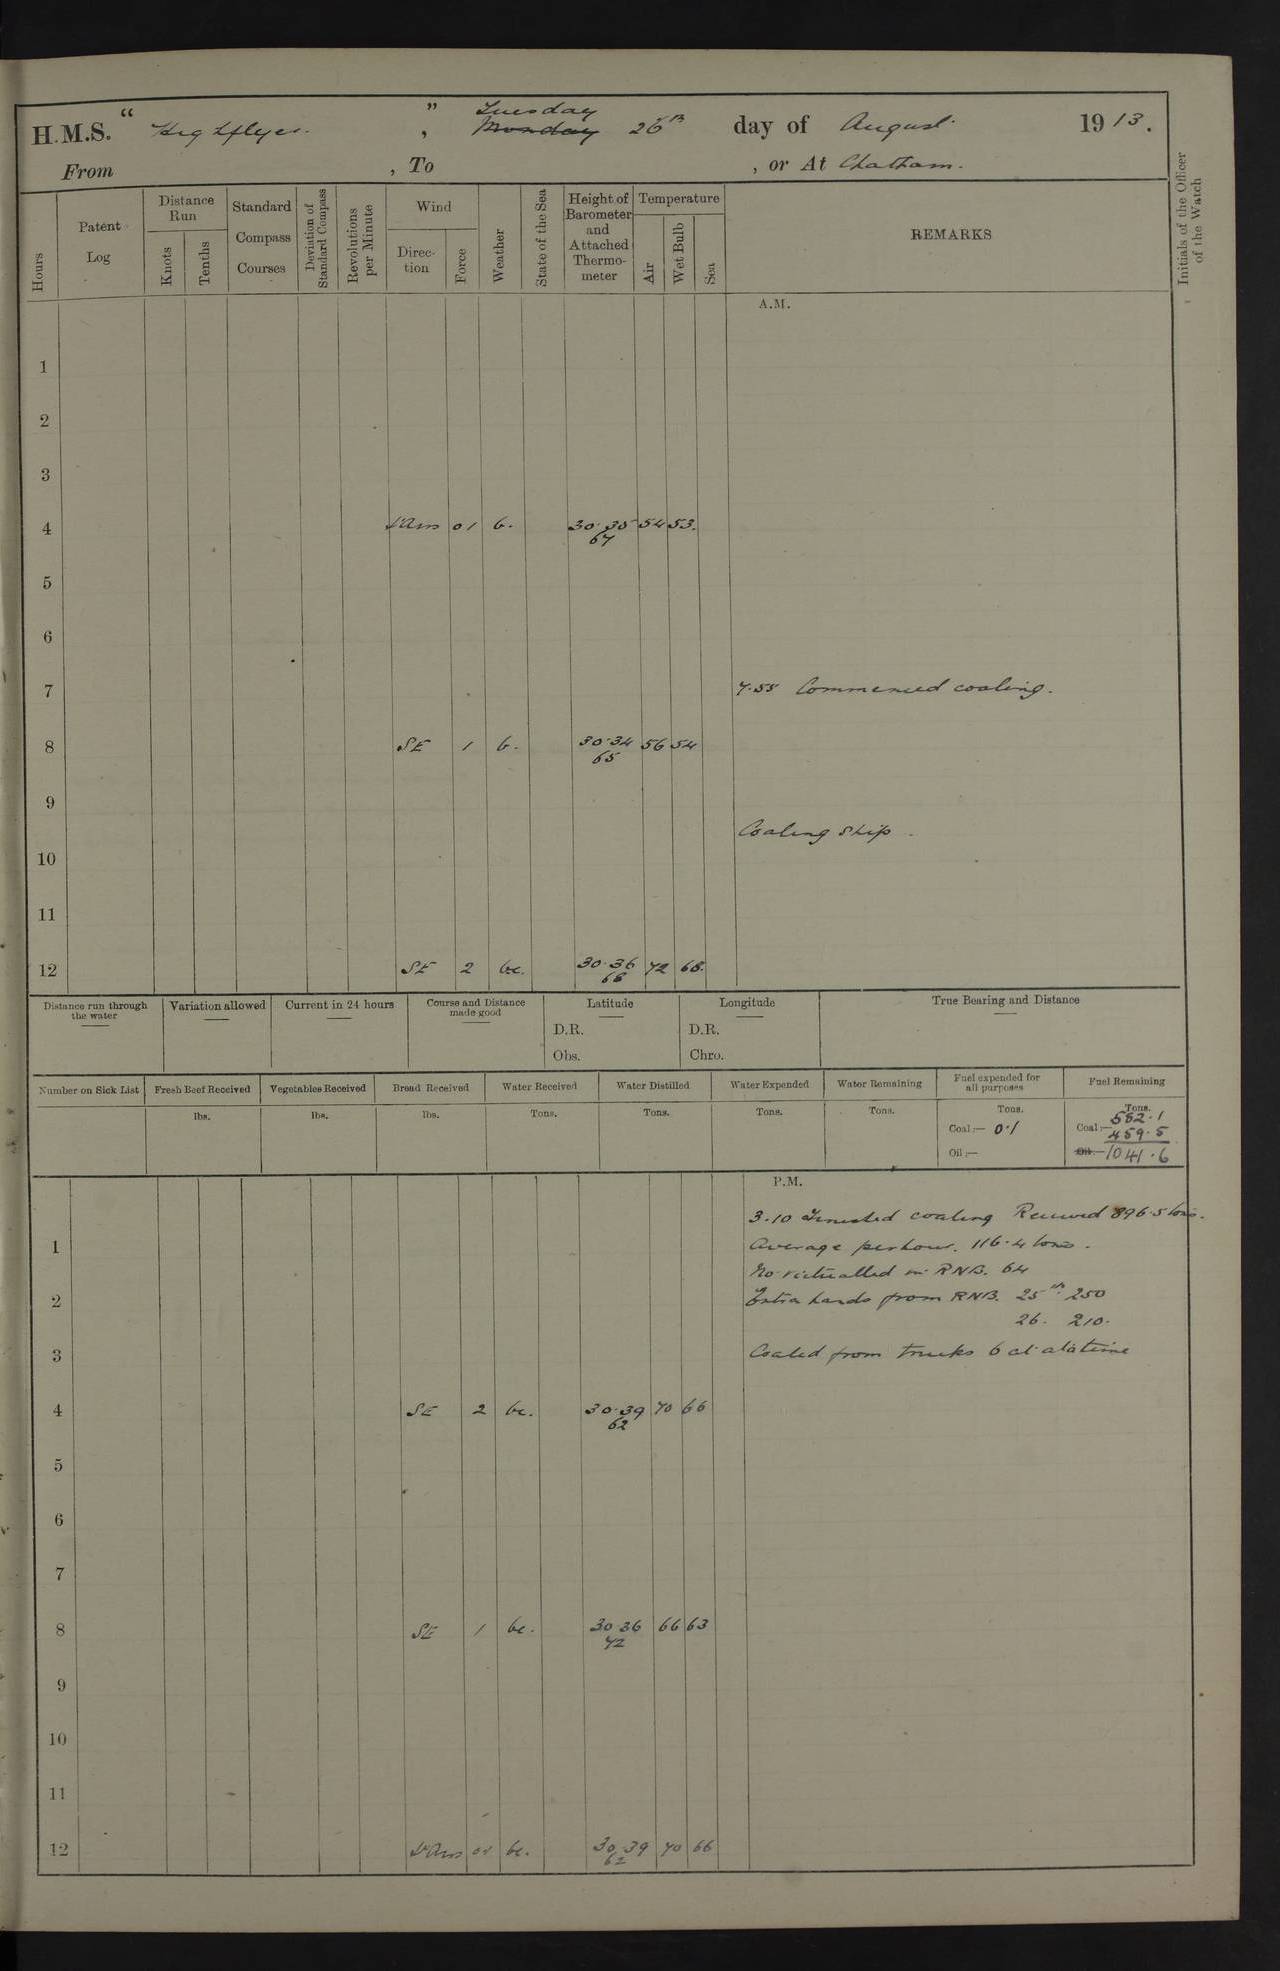 H.M.S. " Highflyer. " , Tuesday Monday 26th day of August 1913.
From , To , or At Chatham.
Hours
Patent Log
Distance Run
Knots
Tenths
Standard Compass Courses
Deviation of Standard Compass
Revolutions per Minute
Wind
Direction
Force
Weather
State of the Sea
Height of Barometer and Attached Thermometer
Temperature
Air
Wet Bulb
Sea
REMARKS
Initials of the Officer of the Watch
A.M.
1
2
3
4 V'Airs 01 b. 30.35 54 53.
67
5
6
7 7.55 Commenced coaling.
8 SE 1 b. 30.34 56 54
65
9
Coaling ship.
10
11
12 SE 2 bc. 30.36 72 68.
68
Distance run through the water
Variation allowed
Current in 24 hours
Course and Distance made good
Latitude
D.R.
Obs.
Longitude
D.R.
Chro.
True Bearing and Distance
Number on Sick List
Fresh Beef Received
lbs.
Vegetables Received
lbs.
Bread Received
lbs.
Water Received
Tons.
Water Distilled
Tons.
Water Expended
Tons.
Water Remaining
Tons.
Fuel expended for all purposes
Tons.
Coal:— 0.1
Oil:—
Fuel Remaining
Tons.
582.1
Coal:— 459.5
Oil:— 1041.6
P.M.
3.10 Finished coaling Received 896.5 tons.
1 Average per hour. 116.4 tons.
No victualled in RNB. 64
2 Extra hands from RNB. 25th 250
26. 210.
3 Coaled from trucks 6 at a time
4 SE 2 bc. 30.39 70 66
62
5
6
7
8 SE 1 bc. 30 36 66 63
72
9
10
11
12 V'Airs 01 bc. 30.39 70 66
62